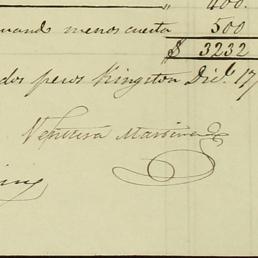 " 400.
menos cuenta 500
$ 3232
dos pesos Kingston Dic. 17
Ventura Martinez